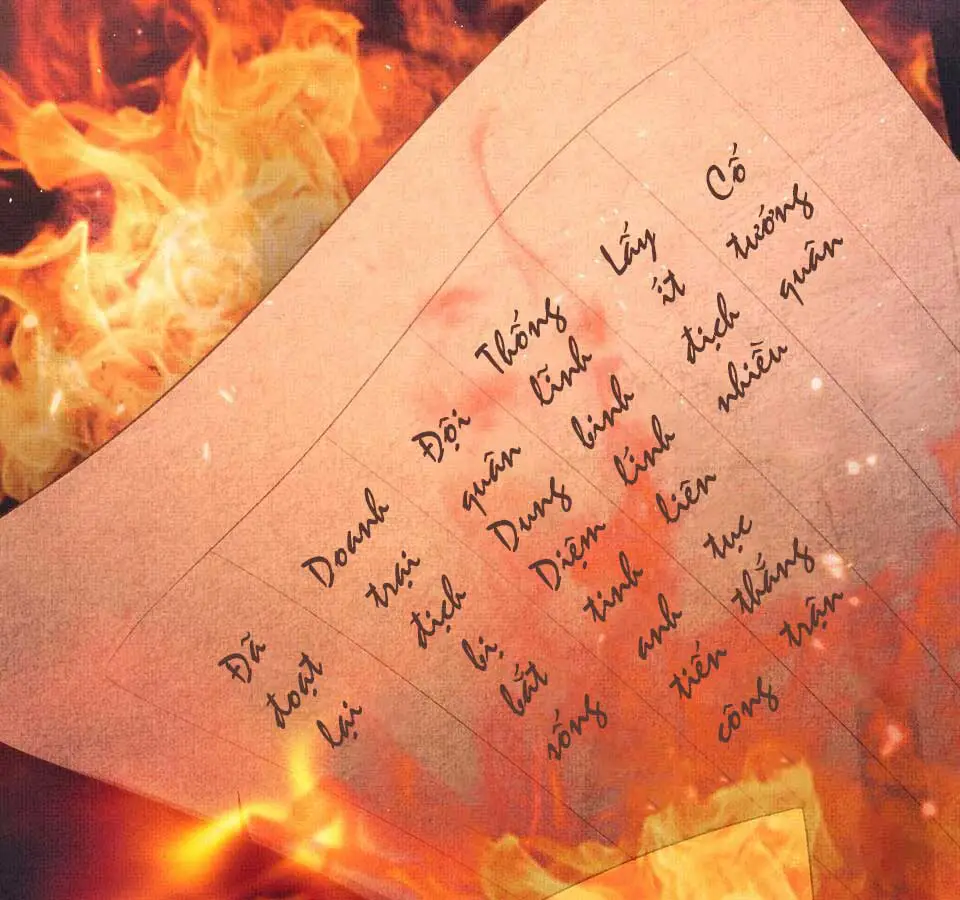 Cố tướng quân
Lấy ít địch nhiều
Thống lĩnh binh lính liên tục thắng trận
Đội quân Dung Diệm tinh anh tiến công
Doanh trại địch bị bắt sống
Đã đoạt lại